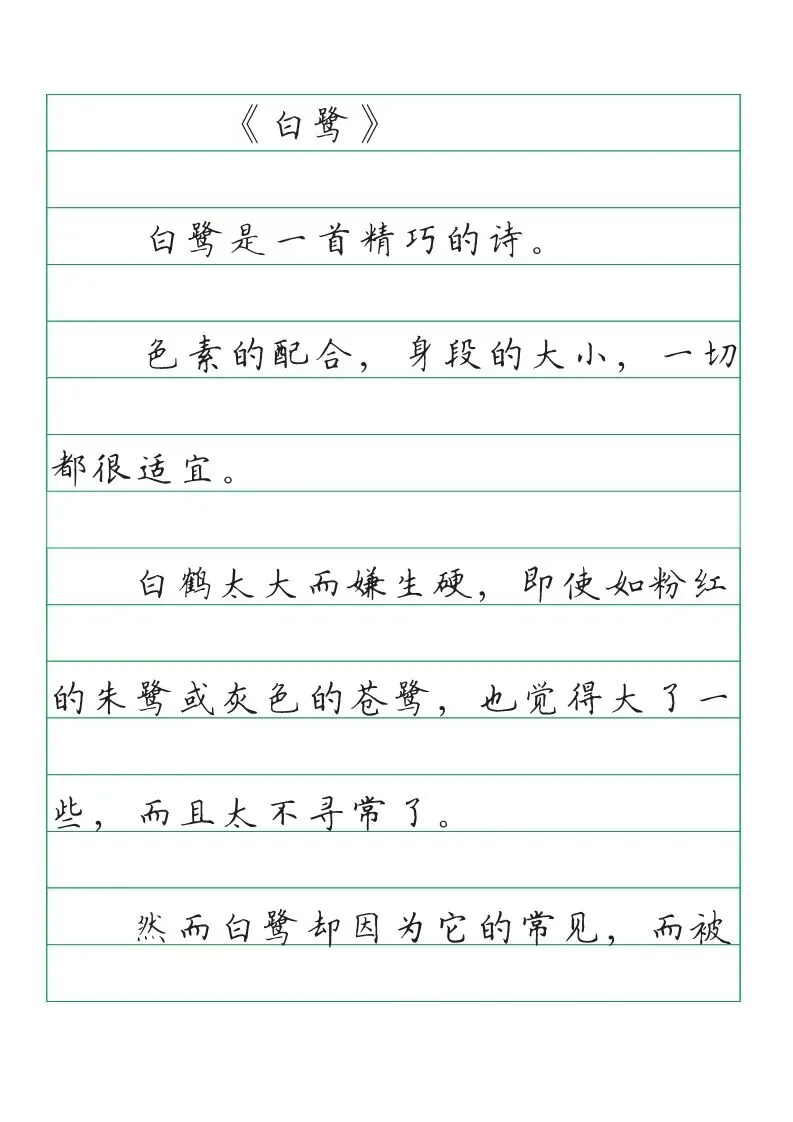 《白鹭》
白鹭是一首精巧的诗。
色素的配合，身段的大小，一切
都很适宜。
白鹤太大而嫌生硬，即使如粉红
的朱鹭或灰色的苍鹭，也觉得大了一
些，而且太不寻常了。
然而白鹭却因为它的常见，而被